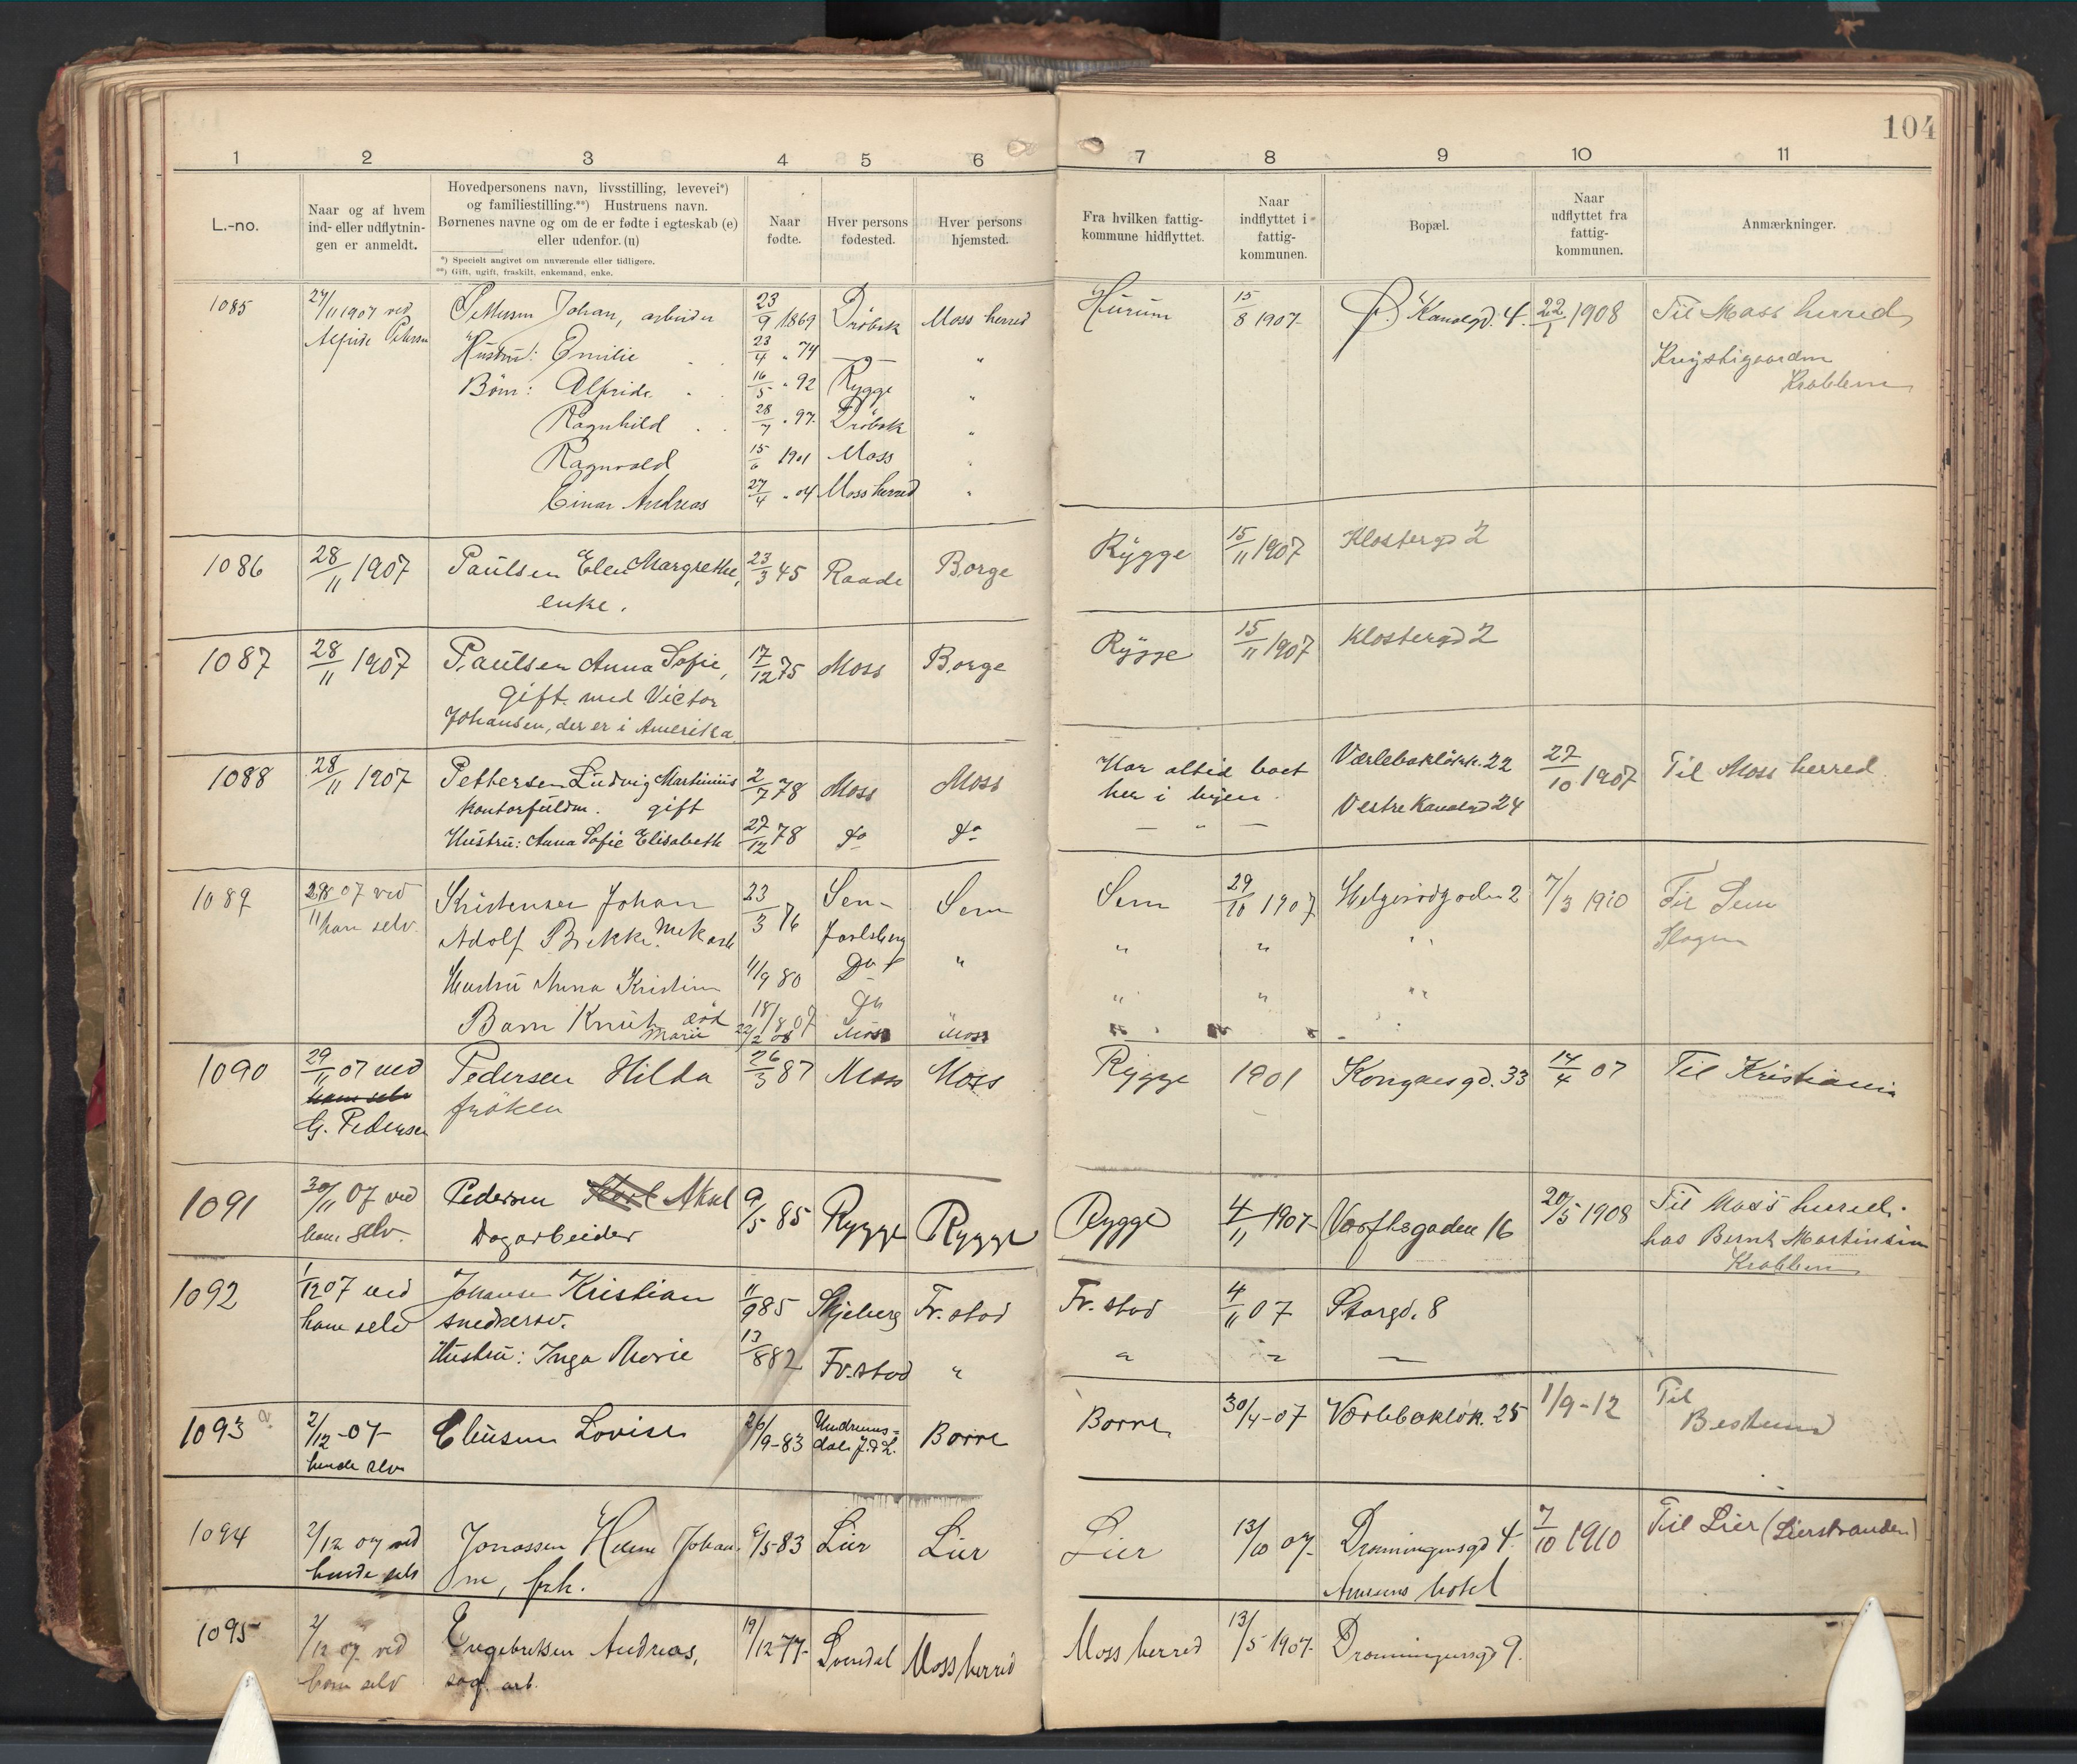 104
1 2 3 4 5 6 7 8 9 10 11
L.-no.
Naar og af hvem
ind- eller udflytnin-
gen er anmeldt.
Hovedpersonens navn, livsstilling, levevei*)
og familiestilling.**) Hustruens navn.
Børnenes navne og om de er fødte i egteskab (e)
eller udenfor. (u)
*) Specielt angivet om nuværende eller tidligere.
**) Gift, ugift, fraskilt, enkemand, enke.
Naar
fødte.
Hver persons
fødested.
Hver persons
hjemsted.
Fra hvilken fattig-
kommune hidflyttet.
Naar
indflyttet i
fattig-
kommunen.
Bopæl.
Naar
udflyttet fra
fattig-
kommunen.
Anmærkninger.
1085 27/11 1907 ved Pettersen Johan, arbeider 23/9 1869 Drøbak Moss herred Hurum 15/8 1907 Kanalgd. 4. 22/1 1908 Til Moss herred
Hustru: Emilie 23/4 " 74 — " — "
Børn: Alfride 16/5 " 92 Rygge " Krabben
Ragnhild 28/7 " 97 Drøbak "
Ragnvald 15/6 1901 Moss "
Einar Andreas 27/4 " 04 Moss herred "
1086 28/11 1907 Paulsen Elen Margrethe, 23/3 45 Raade Borge Rygge 15/11 1907 Klostergd 2
enke.
1087 28/11 1907 Paulsen Anna Sofie, 17/12 75 Moss Borge Rygge 15/11 1907 Klostergd 2
gift med Victor
Johansen, der er i Amerika
1088 28/11 1907 Pettersen Ludvig Martinius 2/7 78 Moss Moss Har altid boet Værlebakløkk. 22 27/10 1907 Til Moss herred
kontorfuldm. gift her i byen. Vestre Kanalgd 24
Hustru: Anna Sofie Elisabeth 27/12 78 do do — " —
1089 29/11 07 ved Kristensen Johan 23/3 76 Sem Sem Sem 29/10 1907 Helgerødgaden 2 7/3 1910 Til Sem
ham selv. Adolf Bekke. Mek arb Jarlsberg " " " Slagen
Hustru Anna Kristine 11/9 80 Do " " " "
Barn Knut 18/8 07 Do
Marie 22/2 08 Moss Moss
1090 29/11 07 ved Pedersen Hilda 26/3 87 Moss Moss Rygge 1901 Kongensgd. 33 14/4 07 Til Kristiania
ham selv frøken
G. Pedersen
1091 30/11 07 ved Pedersen Aksel 9/5 85 Rygge Rygge Rygge 4/11 1907 Værftsgaden 16 20/5 1908 Til Moss herred.
ham selv. Dagarbeider hos Bernt Martinsen
Krabben
1092 1/12 07 ved Johansen Kristian 11/9 85 Skjeberg Fr. stad Fr. stad 4/11 07 Storgd. 8
ham selv snedkersv.
Hustru: Inga Marie 13/8 82 Fr. stad " " " —
1093 2/12 - 07 Eliusen Lovise 26/9 - 83 Undrums= Borre Borre 30/4 - 07 Værlebakløk. 25 1/9 - 12 Til
hende selv dal. J. & L.
1094 2/12 07 ved Jonassen Johan- 9/5 83 Lier Lier Lier 13/10 07 Dronningensgd 4. 7/10 1910 Til Lier (Lierstranden)
hende selv ne, frk. hotel
1095 2/12 07 ved Engebretsen Andreas, 19/12 77 Svendal Moss herred Moss herred 13/5 1907 Dronningensgd 9.
ham selv sag. arb.